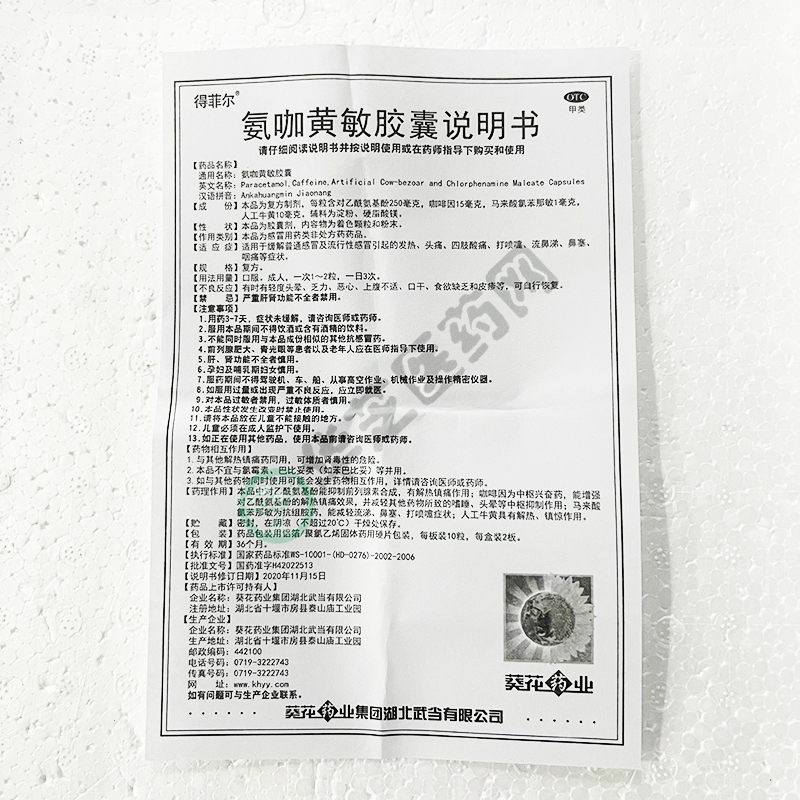 得菲尔®
OTC
甲类
氨咖黄敏胶囊说明书
请仔细阅读说明书并按说明使用或在药师指导下购买和使用
【药品名称】
通用名称：氨咖黄敏胶囊
英文名称：Paracetamol,Caffeine,Artificial Cow-bezoar and Chlorphenamine Maleate Capsules
汉语拼音：Ankahuangmin Jiaonang
【成 份】本品为复方制剂，每粒含对乙酰氨基酚250毫克，咖啡因15毫克，马来酸氯苯那敏1毫克，
人工牛黄10毫克。辅料为淀粉、硬脂酸镁。
【性 状】本品为胶囊剂，内容物为着色颗粒和粉末。
【作用类别】本品为感冒用药类非处方药药品。
【适 应 症】适用于缓解普通感冒及流行性感冒引起的发热、头痛、四肢酸痛、打喷嚏、流鼻涕、鼻塞、
咽痛等症状。
【规 格】复方。
【用法用量】口服。成人，一次1～2粒，一日3次。
【不良反应】有时有轻度头晕、乏力、恶心、上腹不适、口干、食欲缺乏和皮疹等，可自行恢复。
【禁 忌】严重肝肾功能不全者禁用。
【注意事项】
1.用药3-7天，症状未缓解，请咨询医师或药师。
2.服用本品期间不得饮酒或含有酒精的饮料。
3.不能同时服用与本品成份相似的其他抗感冒药。
4.前列腺肥大、青光眼等患者以及老年人应在医师指导下使用。
5.肝、肾功能不全者慎用。
6.孕妇及哺乳期妇女慎用。
7.服药期间不得驾驶机、车、船、从事高空作业、机械作业及操作精密仪器。
8.如服用过量或出现严重不良反应，应立即就医。
9.对本品过敏者禁用，过敏体质者慎用。
10.本品性状发生改变时禁止使用。
11.请将本品放在儿童不能接触的地方。
12.儿童必须在成人监护下使用。
13.如正在使用其他药品，使用本品前请咨询医师或药师。
【药物相互作用】
1.与其他解热镇痛药同用，可增加肾毒性的危险。
2.本品不宜与氯霉素、巴比妥类（如苯巴比妥）等并用。
3.如与其他药物同时使用可能会发生药物相互作用，详情请咨询医师或药师。
【药理作用】本品中对乙酰氨基酚能抑制前列腺素合成，有解热镇痛作用；咖啡因为中枢兴奋药，能增强
对乙酰氨基酚的解热镇痛效果，并减轻其他药物所致的嗜睡、头晕等中枢抑制作用；马来酸
氯苯那敏为抗组胺药，能减轻流涕、鼻塞、打喷嚏症状；人工牛黄具有解热、镇惊作用。
【贮 藏】密封，在阴凉（不超过20℃）干燥处保存。
【包 装】药品包装用铝箔/聚氯乙烯固体药用硬片包装，每板装10粒，每盒装2板。
【有 效 期】36个月。
【执行标准】国家药品标准WS-10001-(HD-0276)-2002-2006
【批准文号】国药准字H42022513
【说明书修订日期】2020年11月15日
【药品上市许可持有人】
企业名称：葵花药业集团湖北武当有限公司
注册地址：湖北省十堰市房县泰山庙工业园
【生产企业】
企业名称：葵花药业集团湖北武当有限公司
生产地址：湖北省十堰市房县泰山庙工业园
邮政编码：442100
电话号码：0719-3222743
传真号码：0719-3222743
网 址：www.khyy.com
如有问题可与生产企业联系。
葵花药业
葵花药业集团湖北武当有限公司